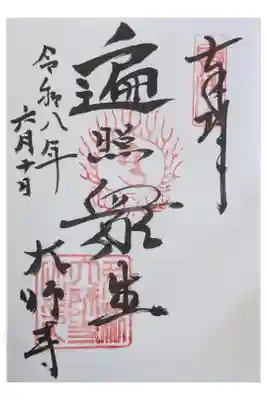 奉拝
遍照衆生
大師寺
令和八年
六月十日